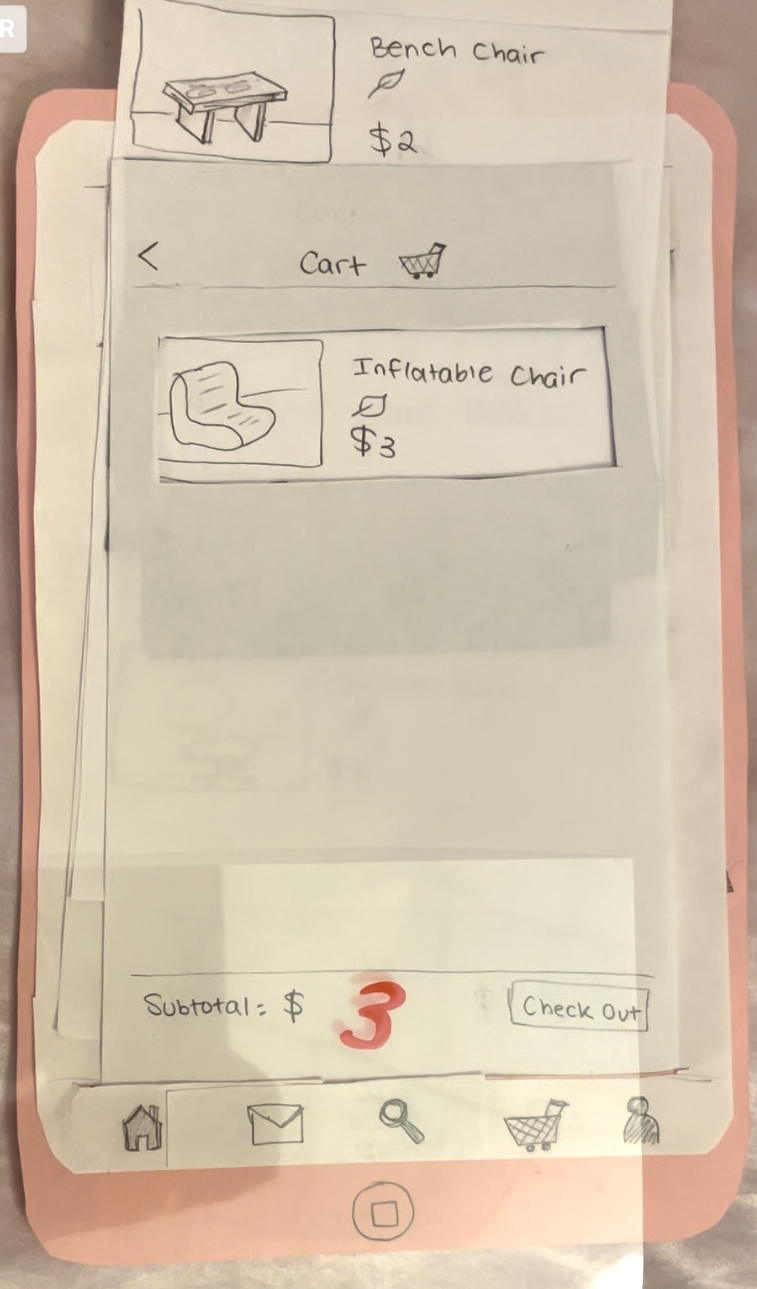 R
Bench Chair
$2
<
Cart
Inflatable Chair
$3
Subtotal: $ 3
Check Out